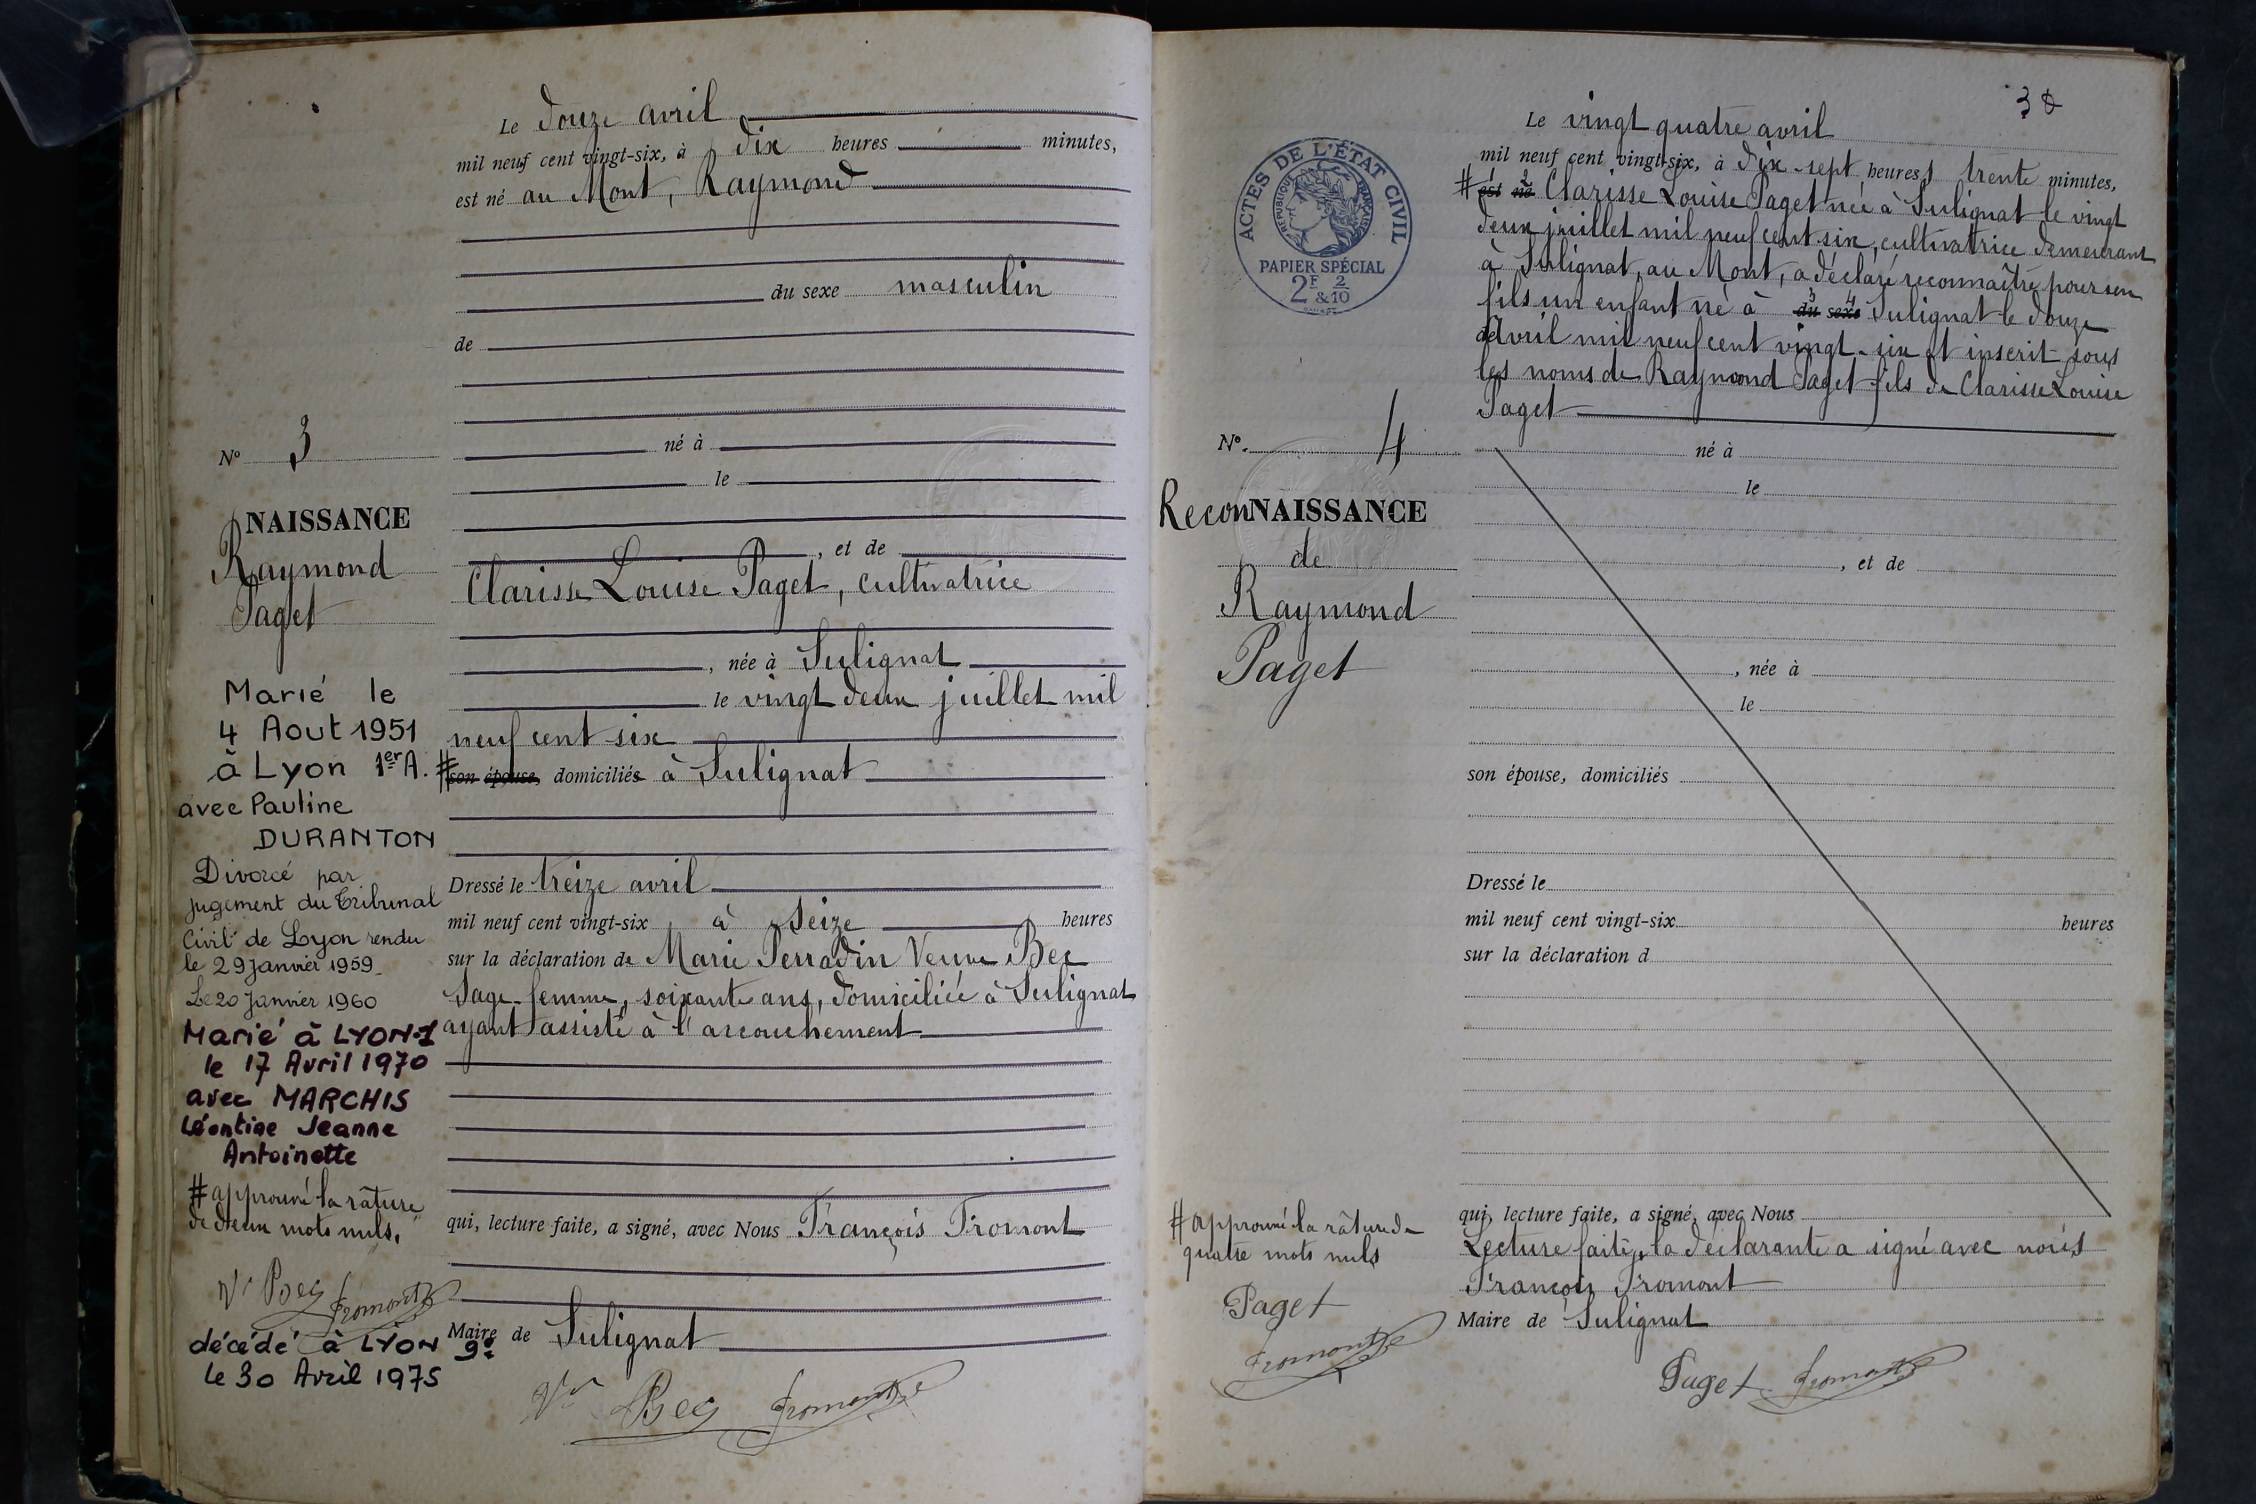 Le douze avril
mil neuf cent vingt-six, à dix heures minutes,
est né au Mont, Raymond
du sexe masculin
de
né à
le
, et de
Clarisse Louise Paget, cultivatrice
, née à Sulignat
le vingt deux juillet mil
neuf cent six
# son épouse, domiciliés à Sulignat
Dressé le treize avril
mil neuf cent vingt-six à seize heures
sur la déclaration de Marie Perradin Veuve Bec
sage-femme, soixante ans, domiciliée à Sulignat
ayant assisté à l'accouchement
qui, lecture faite, a signé, avec Nous François Fromont
Maire de Sulignat
Vve Bec Fromont
N° 3
NAISSANCE
Raymond
Paget
Marié le
4 Aout 1951
à Lyon 1er A.
avec Pauline
DURANTON
Divorcé par
jugement du Tribunal
Civil de Lyon rendu
le 29 janvier 1959_
Le 20 Janvier 1960
Marié à LYON-1
le 17 Avril 1970
avec MARCHIS
Léontine Jeanne
Antoinette
# approuvé la râture
de deux mots nuls.
Vve Bec Fromont
décédé à LYON 9e
le 30 Avril 1975
Le vingt quatre avril
mil neuf cent vingt-six, à dix-sept heures trente minutes,
# est né Clarisse Louise Paget née à Sulignat le vingt
deux juillet mil neuf cent six, cultivatrice demeurant
à Sulignat, au Mont, a déclaré reconnaître pour son
fils un enfant né à du sexe Sulignat le douze
de avril mil neuf cent vingt-six et inscrit sous
les noms de Raymond Paget fils de Clarisse Louise
Paget
né à
le
, et de
, née à
le
son épouse, domiciliés
Dressé le
mil neuf cent vingt-six heures
sur la déclaration d
qui, lecture faite, a signé, avec Nous
Lecture faite, la déclarante a signé avec nous
François Fromont
Maire de Sulignat
Paget Fromont
ACTES DE L'ÉTAT CIVIL
RÉPUBLIQUE FRANÇAISE
PAPIER SPÉCIAL
2F & 2/10
N°. 4
ReconNAISSANCE
de
Raymond
Paget
# approuvé la râture de
quatre mots nuls
Paget
Fromont